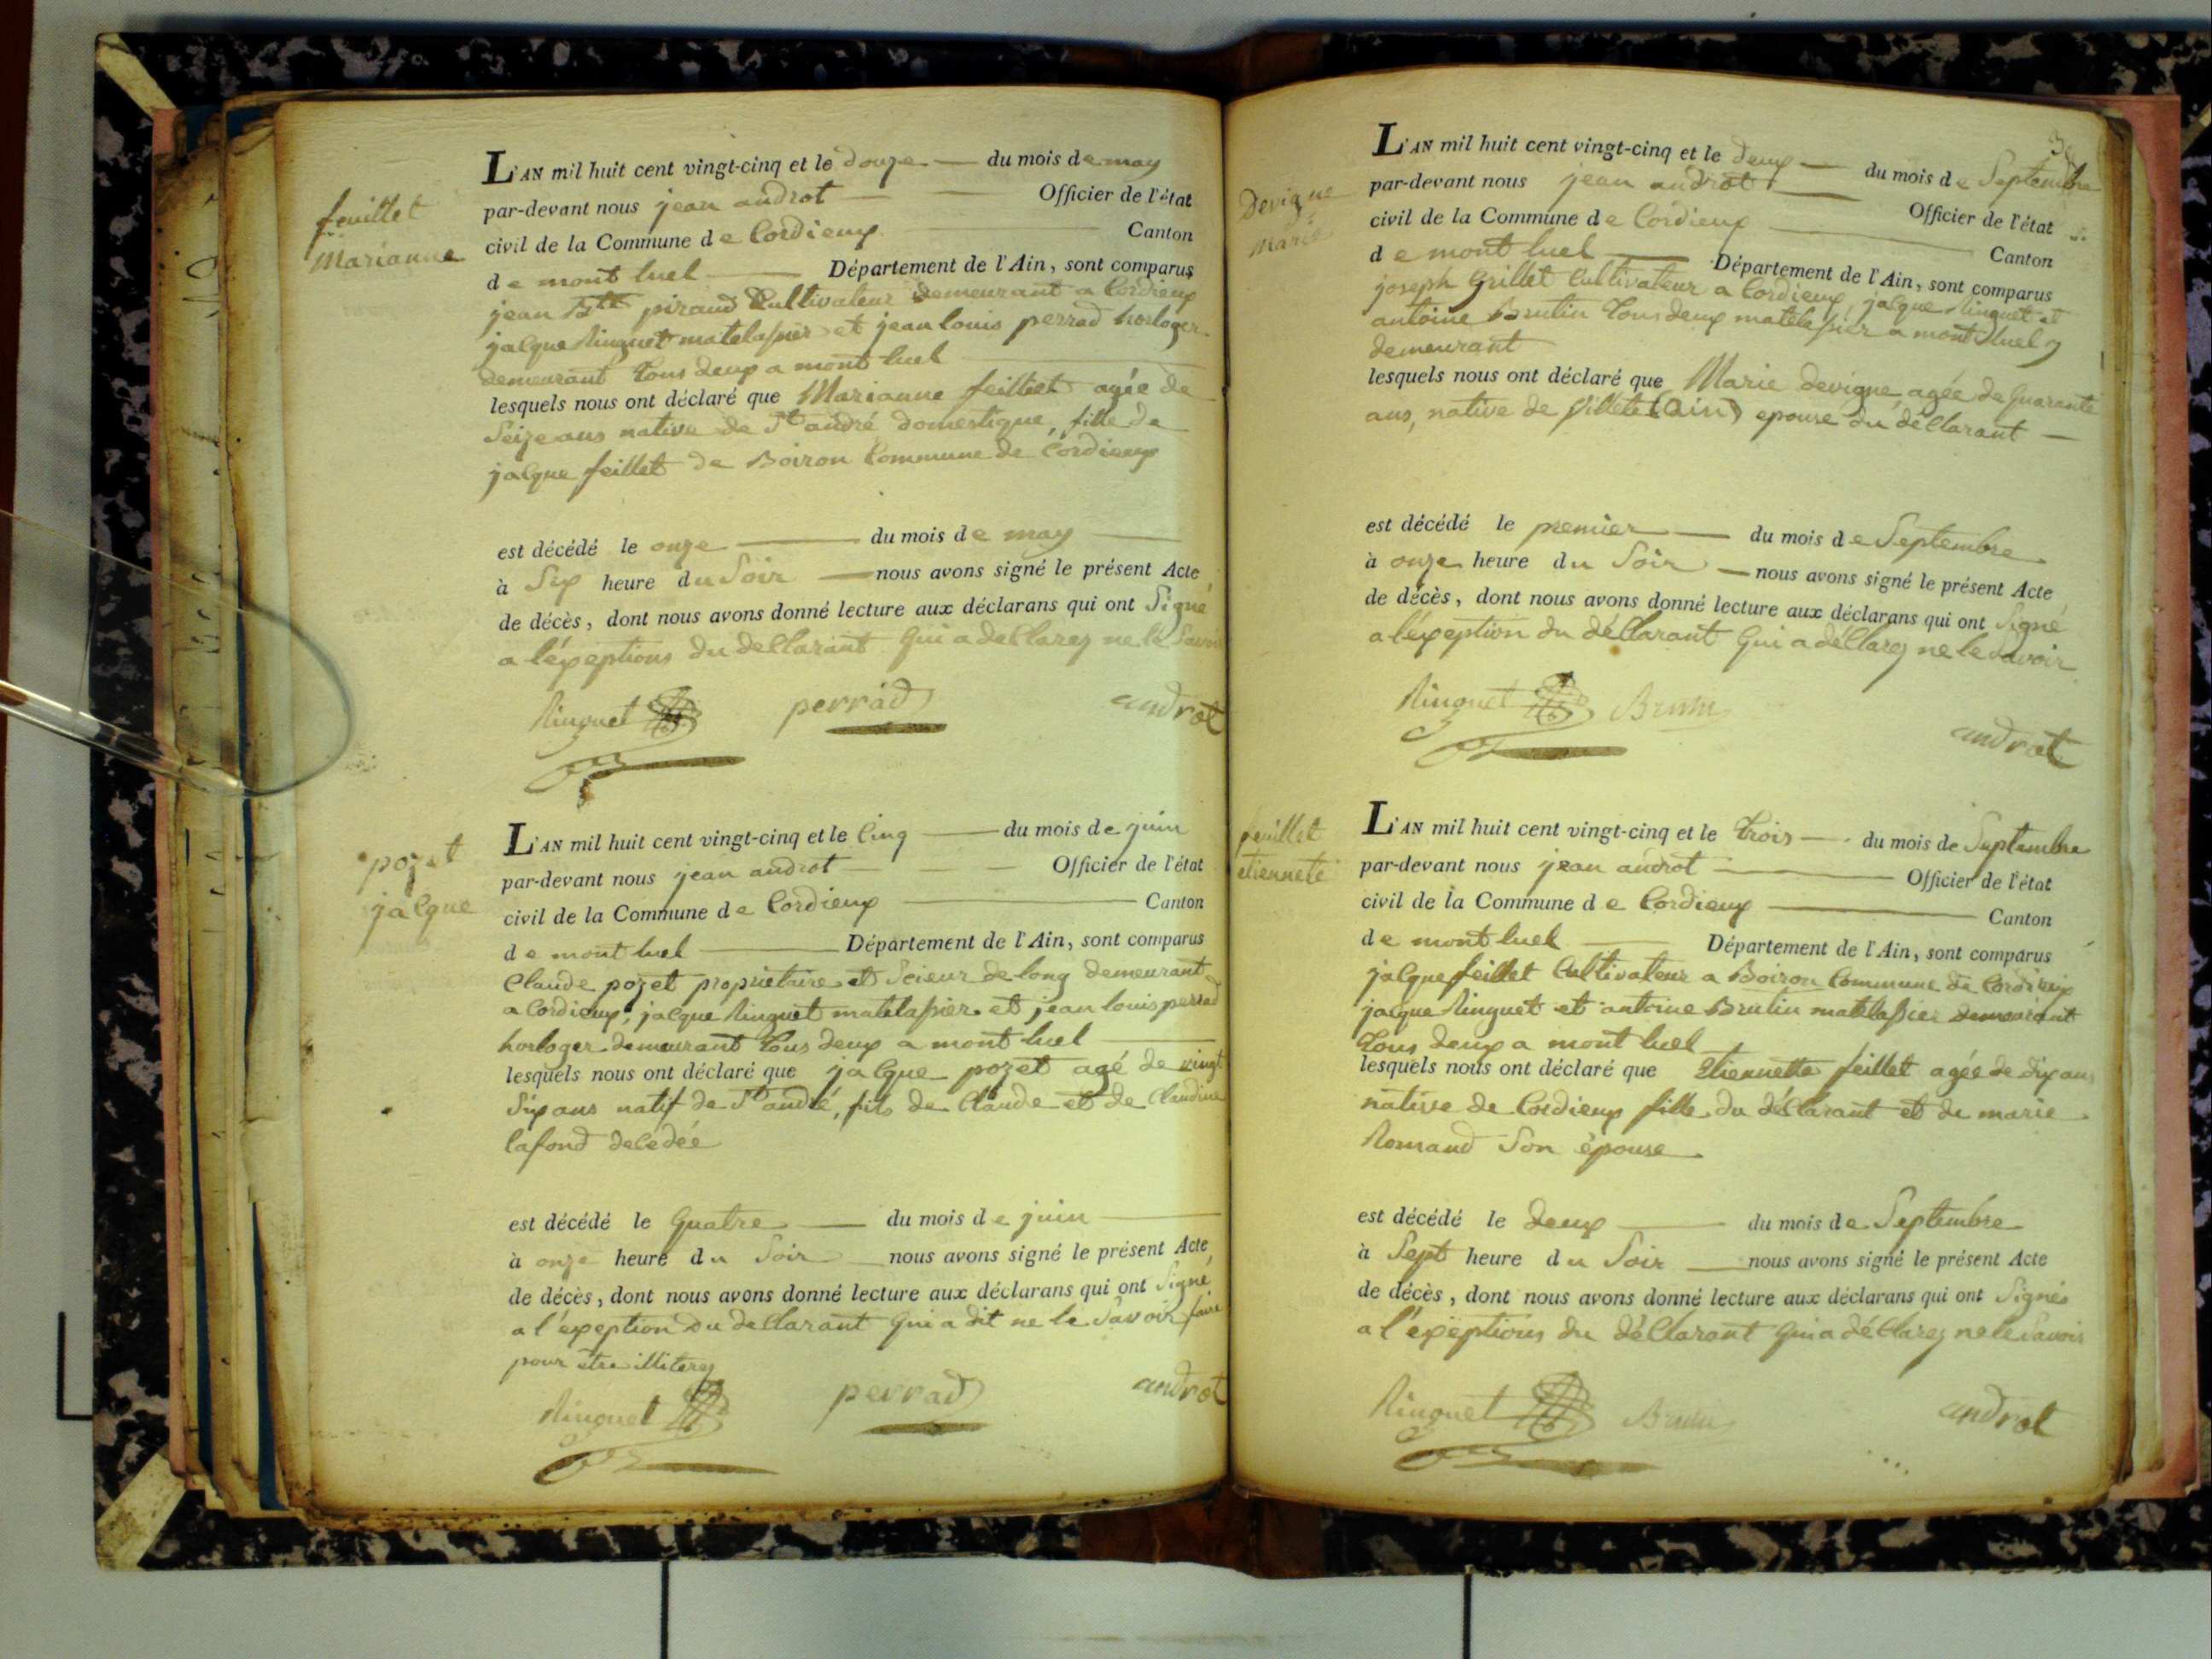 feuillet
Marianne
L'AN mil huit cent vingt-cinq et le douze du mois de may
par-devant nous jean androt Officier de l'état
civil de la Commune de Cordieux Canton
de mont luel Département de l'Ain, sont comparus
jean Bte piraud Cultivateur demeurant a Cordieux
jalque Ringuet matelassier et jean louis perrad horloger
demeurant tous deux a mont luel
lesquels nous ont déclaré que Marianne feilliet agée de
Seize ans native de St andré domestique, fille de
jalque feillet de Boiron Commune de Cordieux
est décédé le onze du mois de may
à Six heure du Soir nous avons signé le présent Acte
de décès, dont nous avons donné lecture aux déclarans qui ont Signé
a l'exeptions du deClarant Qui a deClarez ne le Savoir
Ringuet perrad androt
pozet
jalque
L'AN mil huit cent vingt-cinq et le Cinq du mois de juin
par-devant nous jean androt Officier de l'état
civil de la Commune de Cordieux Canton
de mont luel Département de l'Ain, sont comparus
Claude pozet propriétaire et Scieur de long demeurant
a Cordieux, jalque Ringuet matelassier et jean louis perrad
horloger demeurant tous deux a mont luel
lesquels nous ont déclaré que jalque pozet agé de vingt
Six ans natif de St andré, fils de Claude et de Claudine
lafond decedée
est décédé le Quatre du mois de juin
à onze heure du Soir nous avons signé le présent Acte
de décès, dont nous avons donné lecture aux déclarans qui ont Signé
a l'exeption du deClarant Qui a dit ne le Savoir faire
pour être illiterez
Ringuet perrad androt
Devigne
Marie
L'AN mil huit cent vingt-cinq et le deux du mois de Septembre
par-devant nous jean androt Officier de l'état
civil de la Commune de Cordieux Canton
de mont luel Département de l'Ain, sont comparus
joseph Grillet Cultivateur a Cordieux, jalque Ringuet et
antoine Brutin tous deux matelassier a mont luel y
demeurant
lesquels nous ont déclaré que Marie devigne agée de Quarante
ans, native de Villete (Ain) epouse du déClarant
est décédé le premier du mois de Septembre
à onze heure du Soir nous avons signé le présent Acte
de décès, dont nous avons donné lecture aux déclarans qui ont Signé
a l'exeption du déClarant Qui a déClarez ne le Savoir
Ringuet Brutin androt
feuillet
etiennete
L'AN mil huit cent vingt-cinq et le trois du mois de Septembre
par-devant nous jean androt Officier de l'état
civil de la Commune de Cordieux Canton
de mont luel Département de l'Ain, sont comparus
jalque feillet Cultivateur a Boiron Commune de Cordieux
jacque Ringuet et antoine Brutin matelassier demeurant
tous deux a mont luel
lesquels nous ont déclaré que Etiennette feillet agée de dix ans
native de Cordieux fille du déClarant et de marie
Romand Son épouse
est décédé le deux du mois de Septembre
à Sept heure du Soir nous avons signé le présent Acte
de décès, dont nous avons donné lecture aux déclarans qui ont Signés
a l'exeptions du déClarant Qui a déClarez ne le Savoir
Ringuet Brutin androt